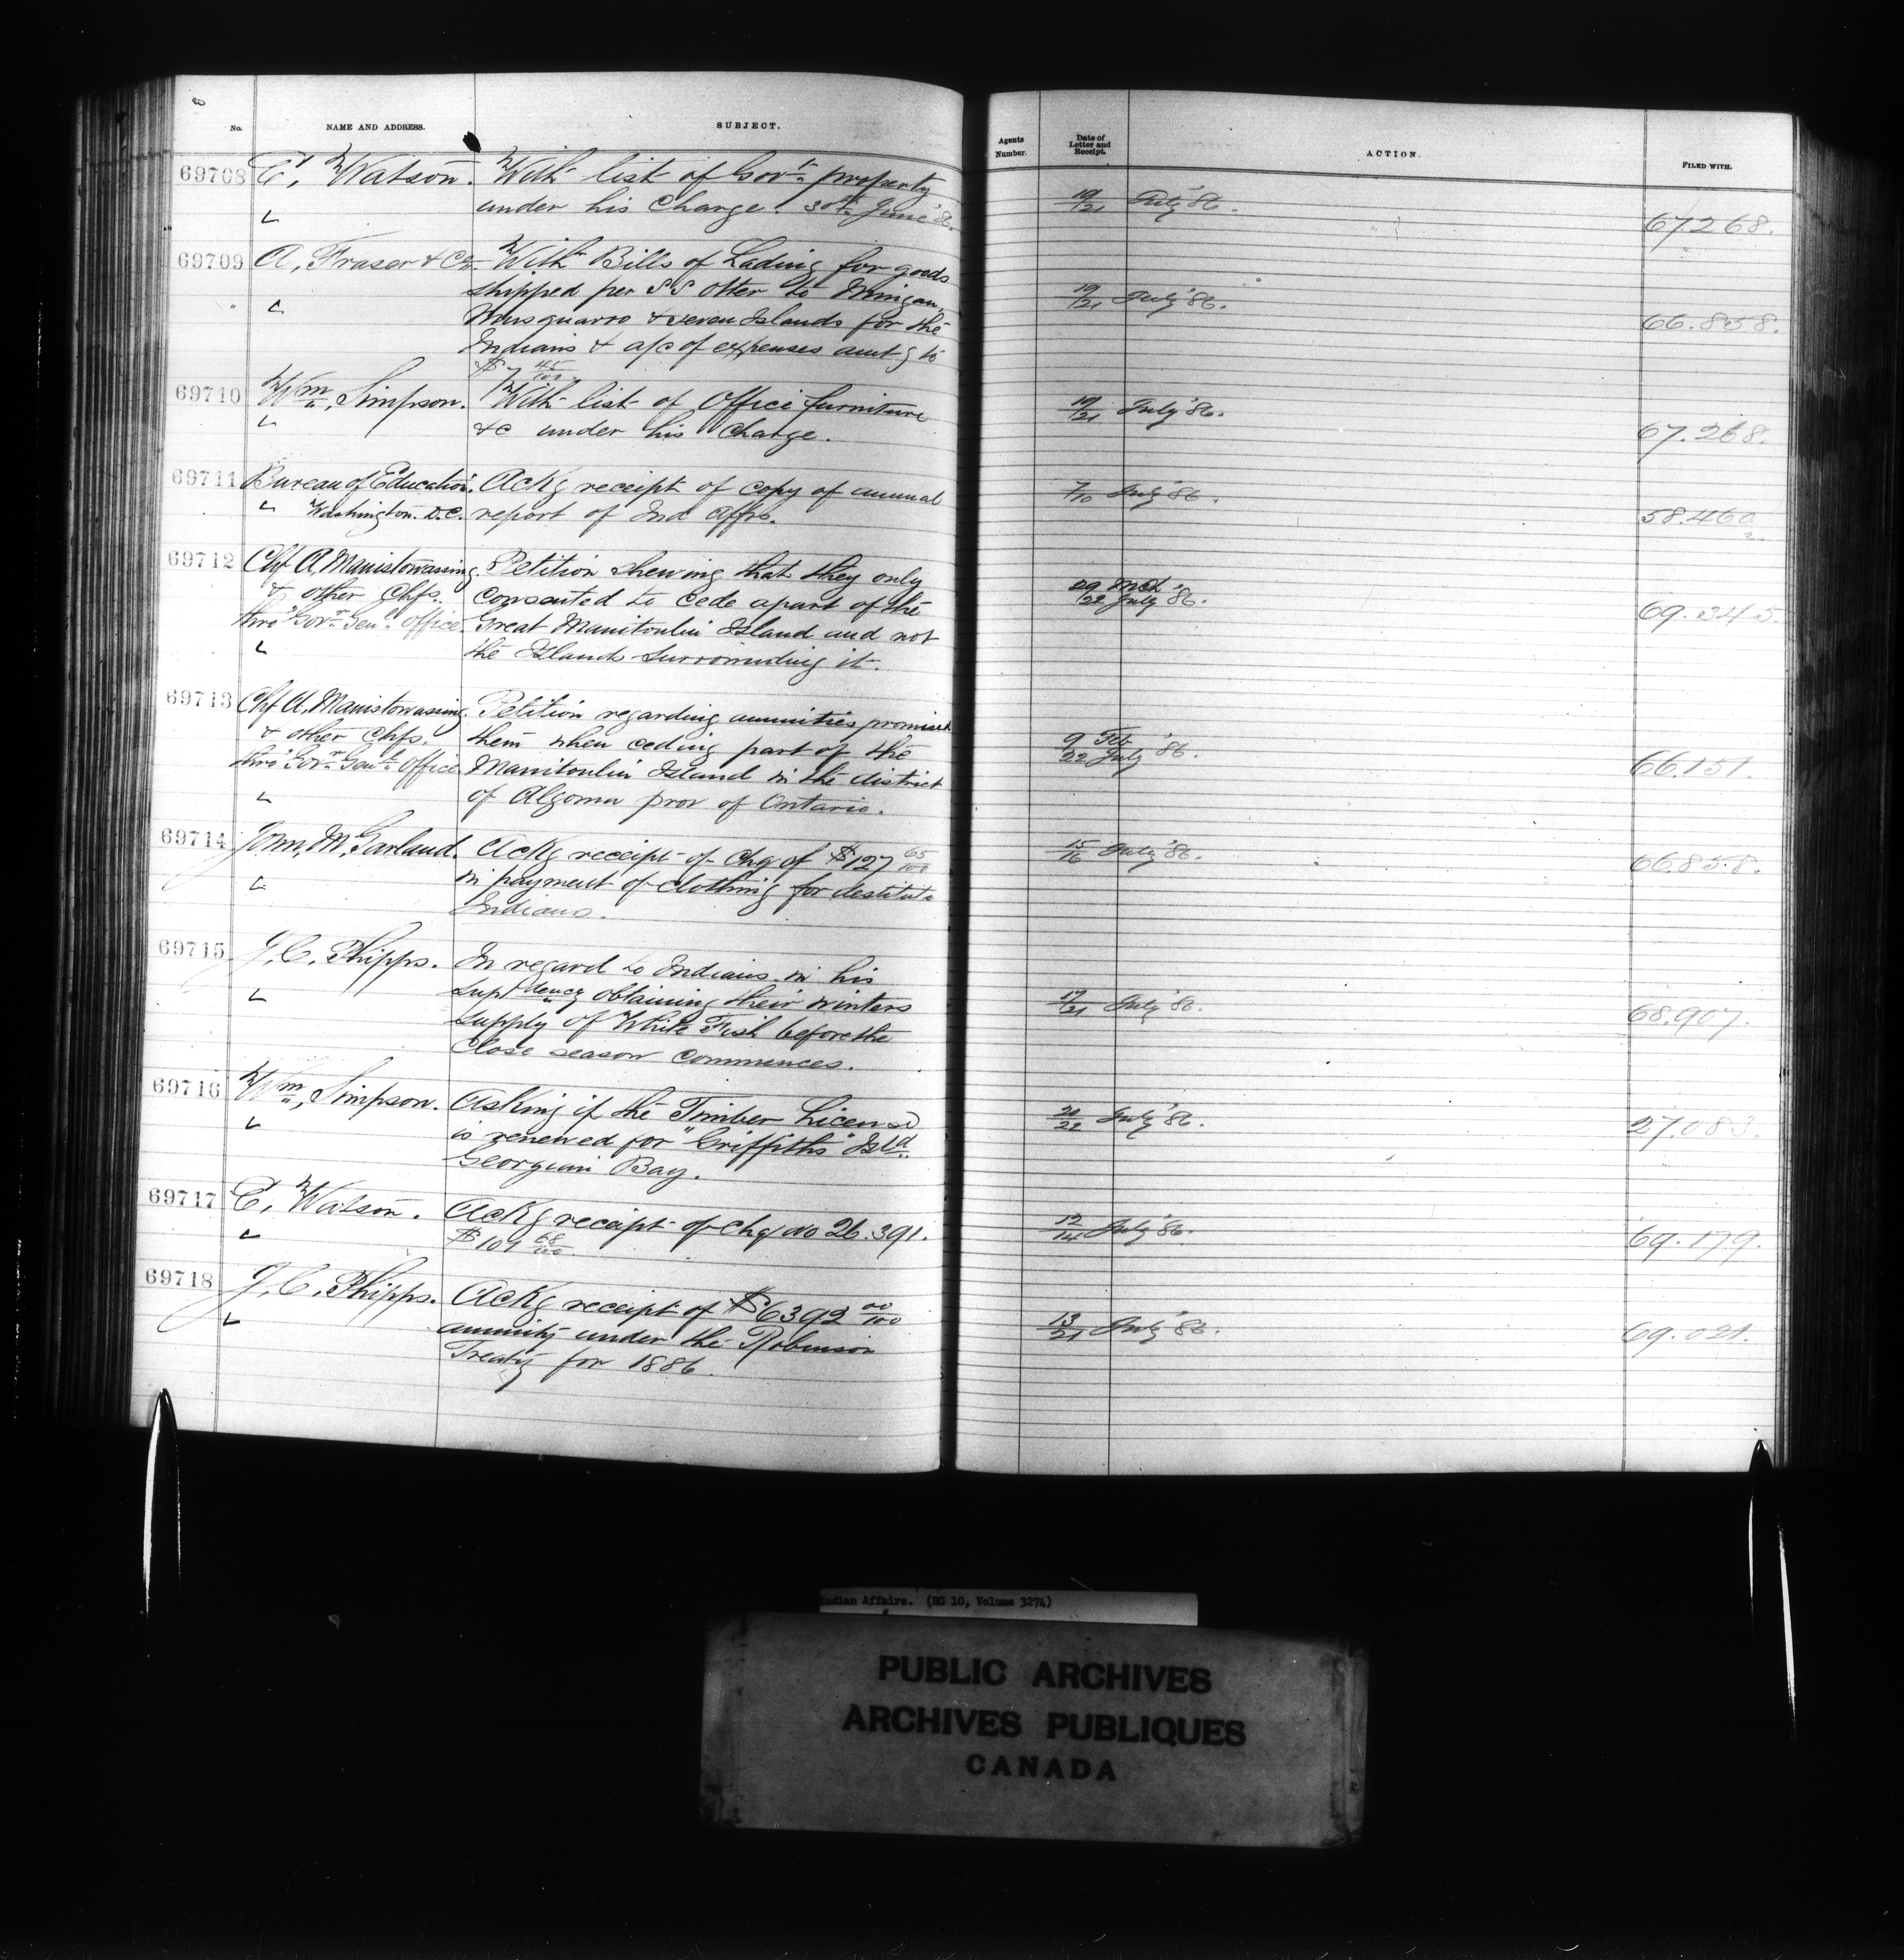 No. NAME AND ADDRESS. SUBJECT. Agents Number. Date of Letter and Receipt. ACTION. FILED WITH.
69708 E, Watson. With list of Gov't property 19/21 July '86.
under his Charge. 30th June '86. 67268.
69709 A, Fraser & Co. With Bills of Lading for goods
shipped per SS Otter to Mingan, 19/21 July '86.
Musquarro & Seven Islands for the 66.858.
Indians & a/c of expenses amtg to
$7 45/100.
69710 Wm, Simpson. With list of Office furniture 19/21 July '86.
&c under his Charge. 67.268.
69711 Bureau of Education. Ackg receipt of copy of annual 7/10 July '86.
Washington. D.C. report of Ind Affrs. 58.460
69712 Chf A, Manistowassing. Petition shewing that they only
& other Chfs. consented to cede apart of the 29 Mch / 22 July '86.
thro' Govr Genl Office. Great Manitoulin Island and not 69.345.
the Islands surrounding it.
69713 Chf A, Manistowassing. Petition regarding annuities promised
& other Chfs. them when ceding part of the 9 Feb / 22 July '86.
thro' Govr Genl Office. Manitoulin Island in the district 66.151.
of Algoma prov of Ontario.
69714 John, M, Garland. Ackg receipt of Chq of $127 65/100 15/16 July '86.
in payment of clothing for destitute 66.858.
Indians.
69715 J, C, Phipps. In regard to Indians in his
Suptdency obtaining their winters 17/21 July '86.
supply of White Fish before the 68.907.
Close season commences.
69716 Wm, Simpson. Asking if the Timber License 20/22 July '86.
is renewed for "Griffiths" Isld. 27.083.
Georgian Bay.
69717 E, Watson. Ackg receipt of Chq no 26.391. 12/14 July '86.
$101 68/100. 69.179.
69718 J, C, Phipps. Ackg receipt of $6392 00/100 13/21 July '86.
annuity under the Robinson 69.021.
Treaty for 1886.
Indian Affairs. (RG 10, Volume 3274)
PUBLIC ARCHIVES
ARCHIVES PUBLIQUES
CANADA